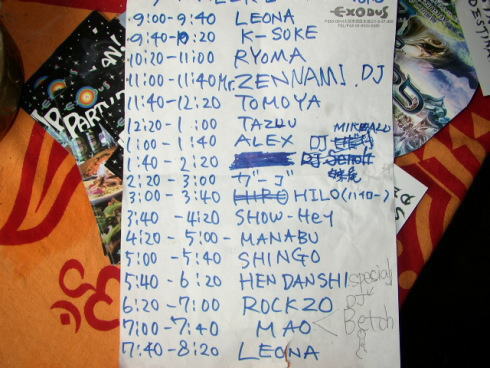 EXODUS
9:00-9:40 LEONA
9:40-10:20 K-SOKE
10:20-11:00 RYOMA
11:00-11:40 Mr. ZENNAMI.DJ
11:40-12:20 TOMOYA
12:20-1:00 TAZUU
1:00-1:40 ALEX DJ
1:40-2:20 DJ
2:20-3:00 ザ-ゴ
3:00-3:40 HIRO HILO(ハイロー)
3:40-4:20 SHOW-Hey
4:20-5:00-MANABU
5:00-5:40 SHINGO
5:40-6:20 HENDANSHI special
6:20-7:00 ROCKZO DJ
7:00-7:40 MAO < Betch
7:40-8:20 LEONA